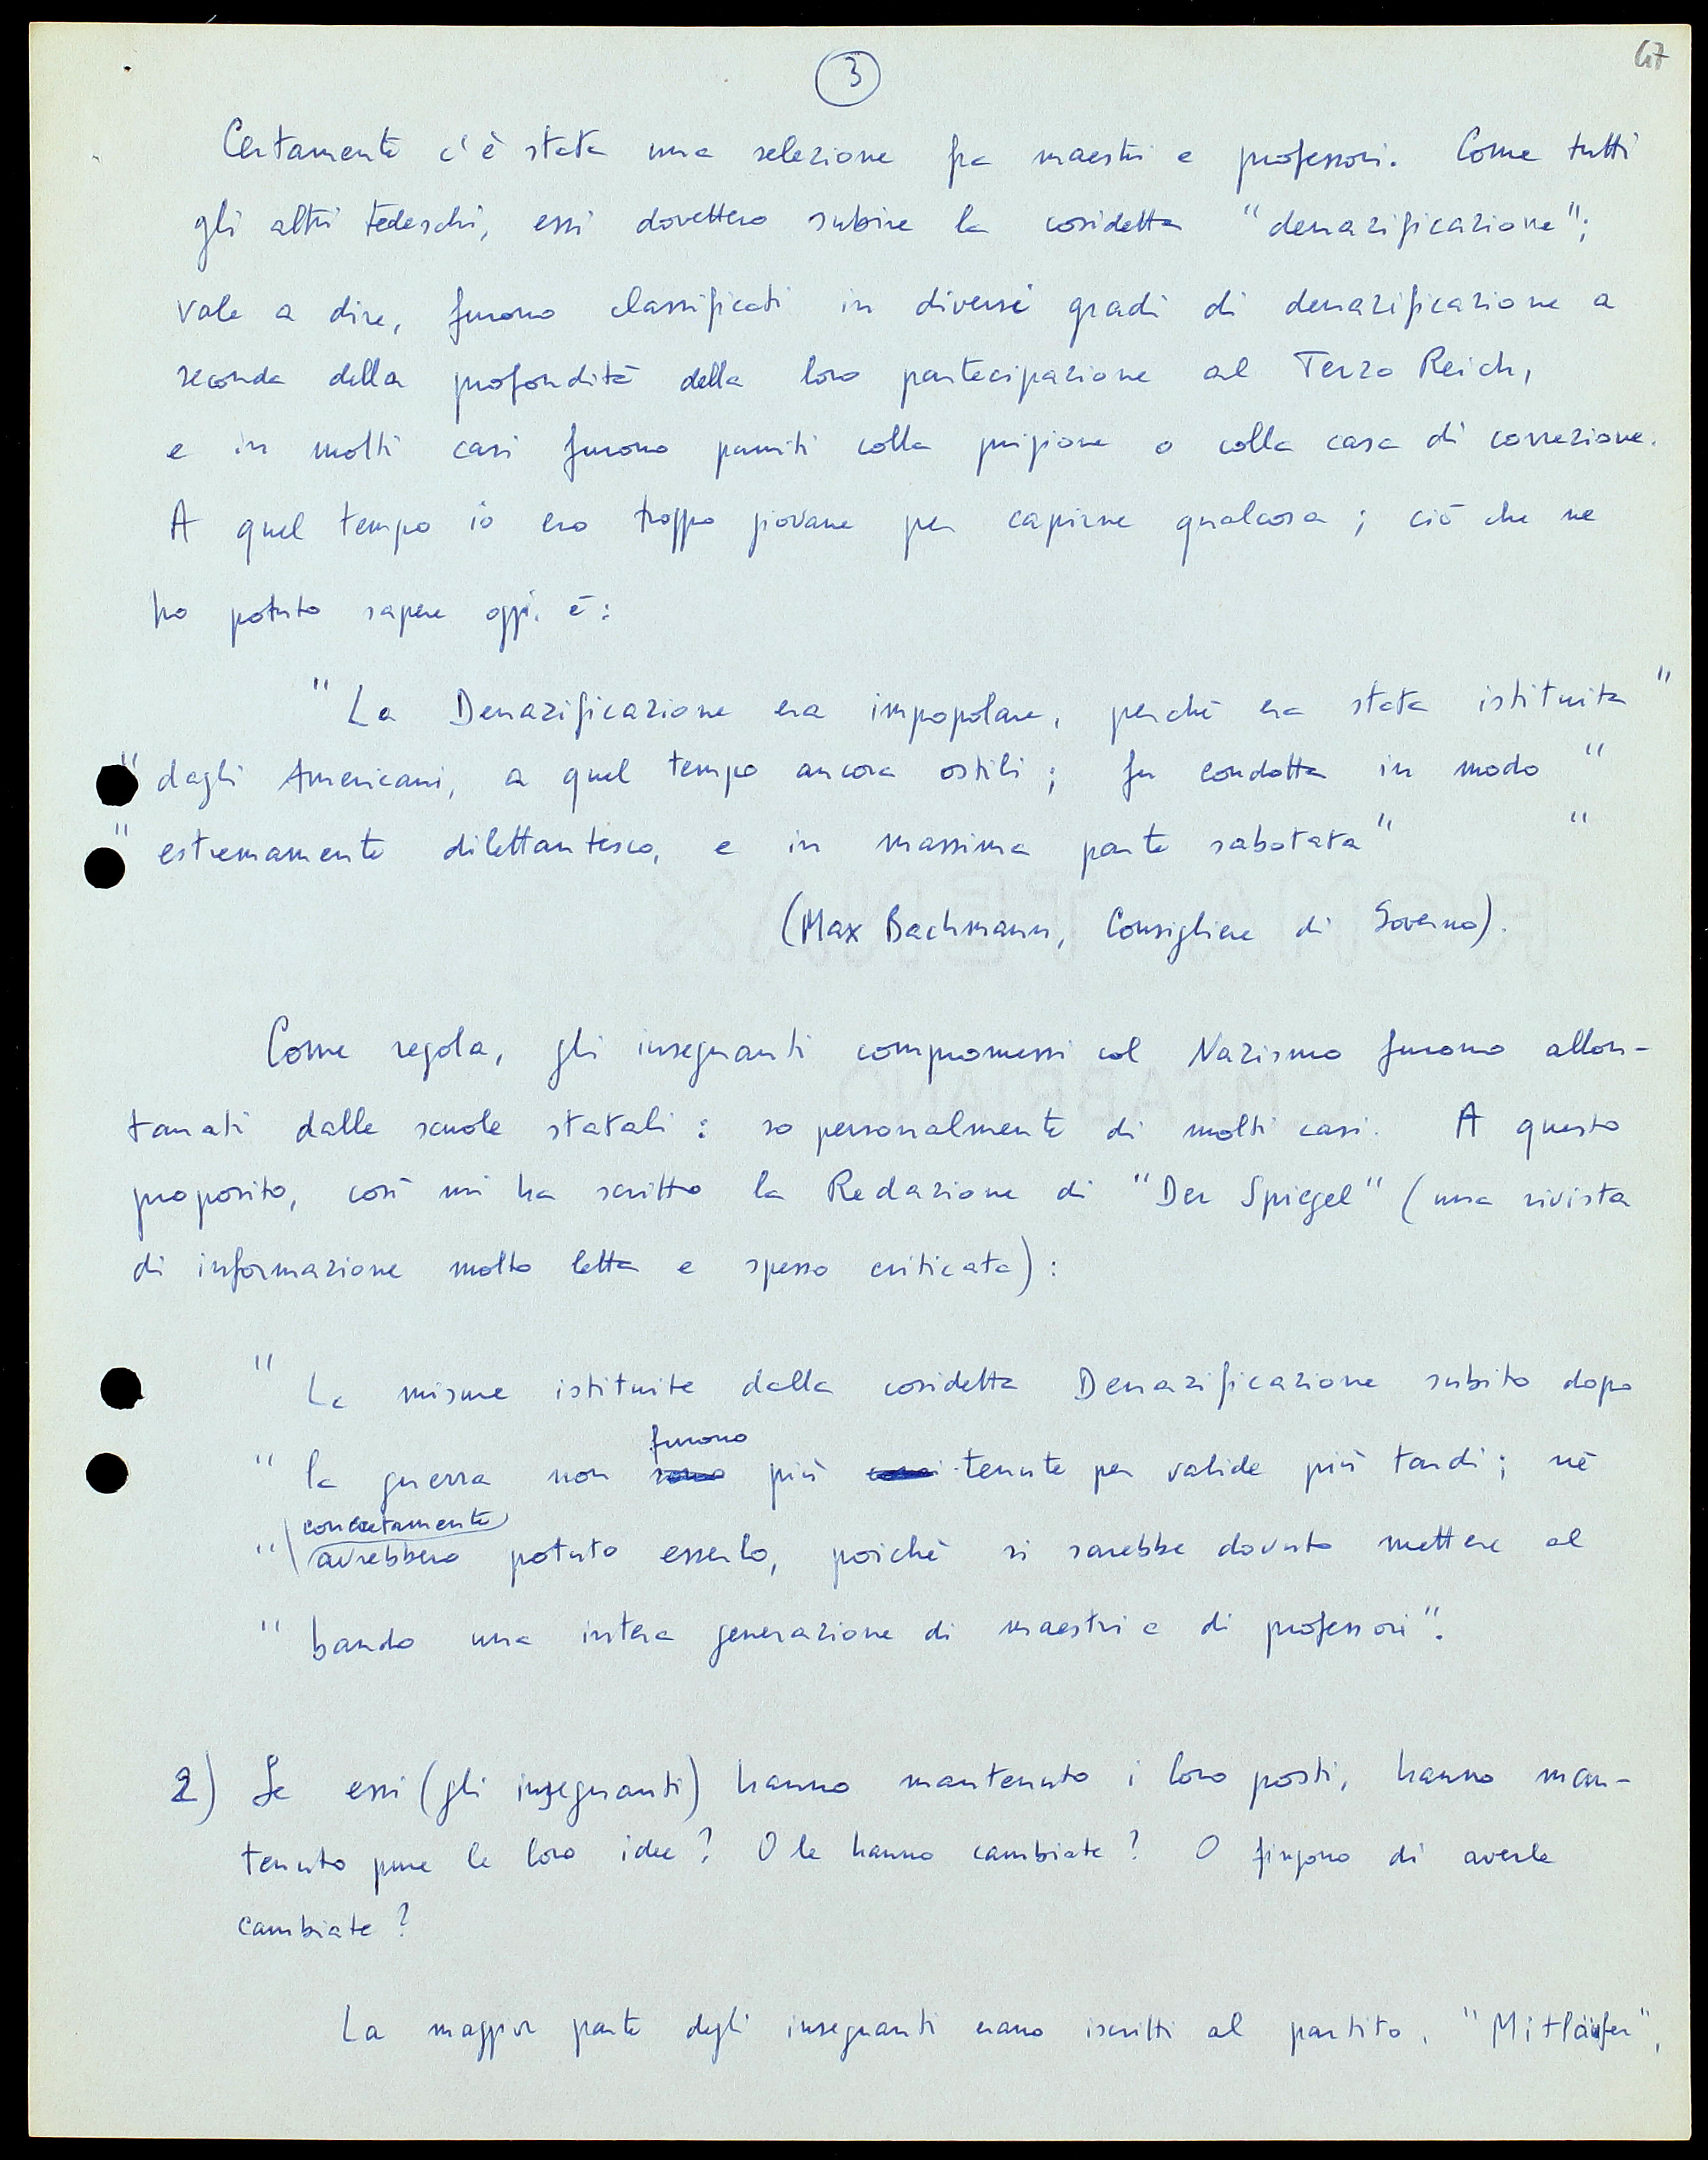 3
47
Certamente c'è stata una selezione fra maestri e professori. Come tutti
gli altri tedeschi, essi dovettero subire la cosidetta "denazificazione";
vale a dire, furono classificati in diversi gradi di denazificazione a
seconda della profondità della loro partecipazione al Terzo Reich,
e in molti casi furono puniti colla prigione o colla casa di correzione.
A quel tempo io ero troppo giovane per capirne qualcosa; ciò che ne
ho potuto sapere oggi è:
" La Denazificazione era impopolare, perché era stata istituita "
" dagli Americani, a quel tempo ancora ostili; fu condotta in modo "
" estremamente dilettantesco, e in massima parte sabotata" "
(Max Bachmann, Consigliere di Governo).
Come regola, gli insegnanti compromessi col Nazismo furono allon-
tanati dalle scuole statali: so personalmente di molti casi. A questo
proposito, così mi ha scritto la Redazione di "Der Spiegel" (una rivista
di informazione molto letta e spesso criticata):
" Le misure istituite dalla cosidetta Denazificazione subito dopo
furono
" la guerra non sono più tenute per valide più tardi; né
concretamente
" avrebbero potuto esserlo, poiché si sarebbe dovuto mettere al
" bando una intera generazione di maestri e di professori".
2) Se essi (gli insegnanti) hanno mantenuto i loro posti, hanno man-
tenuto pure le loro idee? O le hanno cambiate? O fingono di averle
cambiate?
La maggior parte degli insegnanti erano iscritti al partito. "Mitläufer",